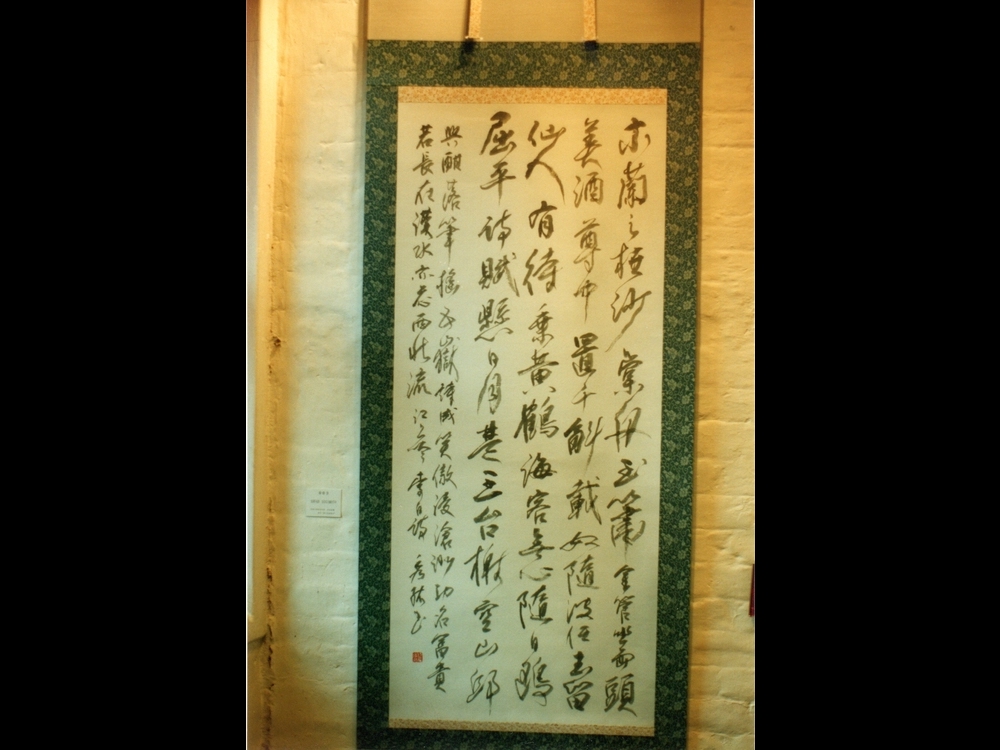 木蘭之枻沙棠舟玉簫金管坐兩頭
美酒尊中置千斛載妓隨波任去留
仙人有待乘黃鶴海客無心隨白鷗
屈平詩賦懸日月楚王台榭空山邱
興酣落筆搖五嶽詩成笑傲淩滄洲功名富貴
若長在漢水亦應西北流 江上吟 李白詩